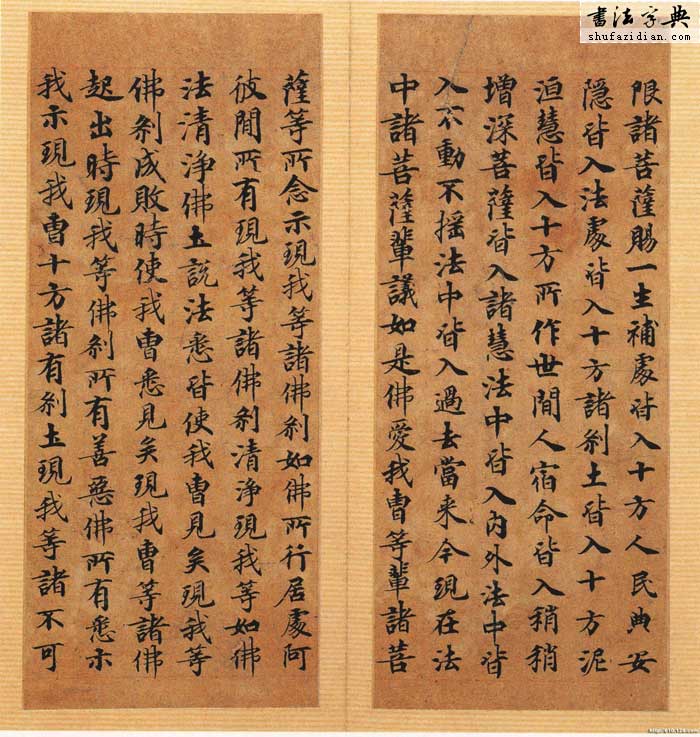 書法字典
shufazidian.com
限諸菩薩賜一生補處皆入十方人民典安
隱皆入法處皆入十方諸刹土皆入十方泥
洹慧皆入十方所作世間人宿命皆入稍稍
增深菩薩皆入諸慧法中皆入內外法中皆
入不動不搖法中皆入過去當来今現在法
中諸菩薩輩議如是佛愛我曹等輩諸菩
薩等所念示現我等諸佛刹如佛所行居處何
彼間所有現我等諸佛刹清淨現我等如佛
法清淨佛土說法悉皆使我曹見矣現我等
佛刹成敗時使我曹悉見矣現我曹等諸佛
起出時現我等佛刹所有善惡佛所有悉示
我示現我曹十方諸有刹土現我等諸不可